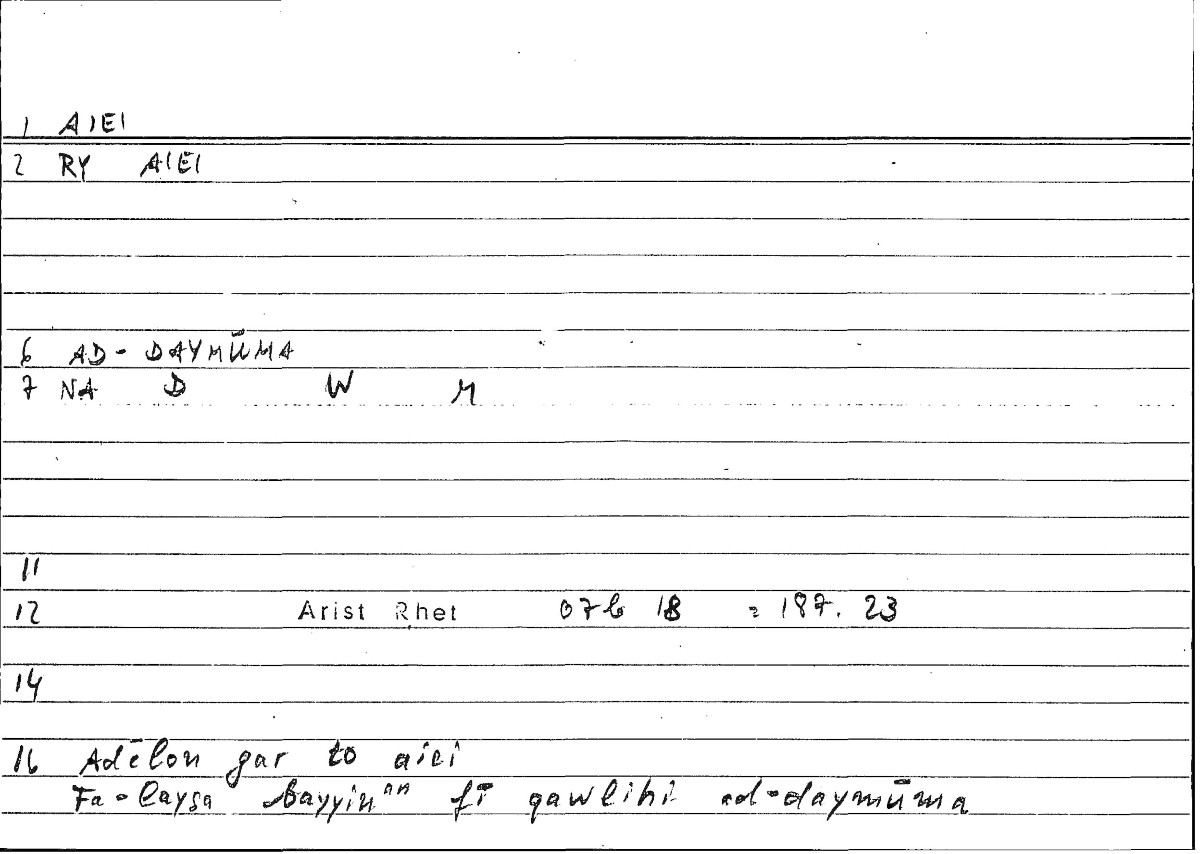 1 AIEI
2 RY AIEI
6 AD-DAYMŪMA
7 NA D W M
11
12 Arist Rhet 07b 18 = 187.23
14
16 Adēlon gar to aiei
Fa-laysa bayyinᵃⁿ fī qawlihi ad-daymūma